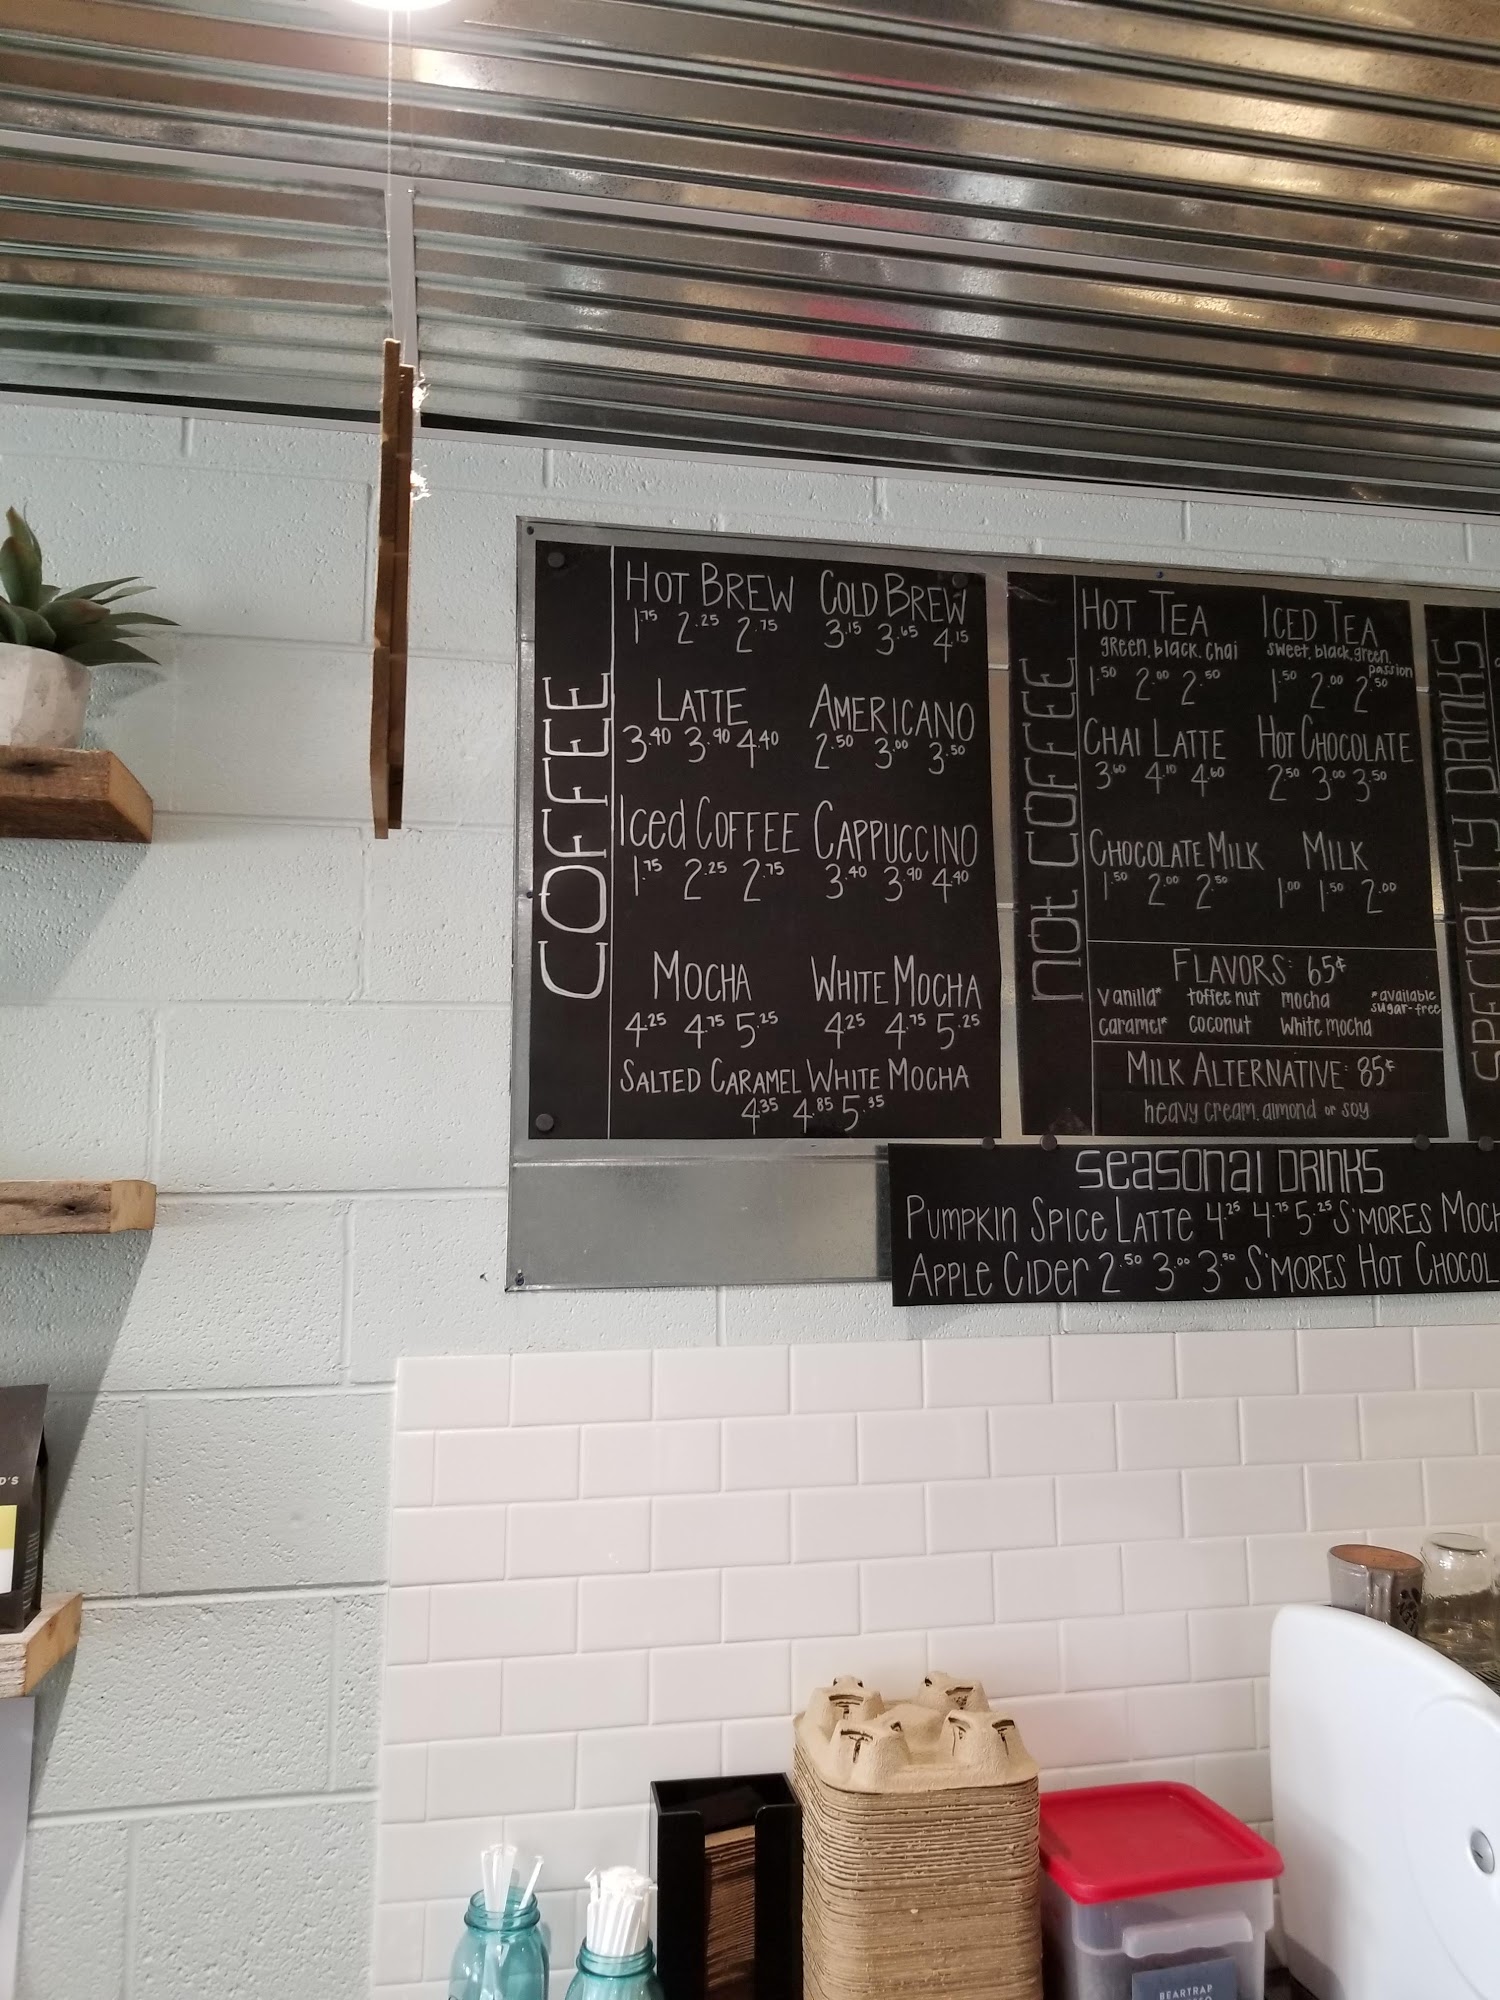 COFFEE
HOT BREW
1.75 2.25 2.75
COLD BREW
3.15 3.65 4.15
LATTE
3.40 3.90 4.40
AMERICANO
2.50 3.00 3.50
Iced COFFEE
1.75 2.25 2.75
CAPPUCCINO
3.40 3.90 4.40
MOCHA
4.25 4.75 5.25
WHITE MOCHA
4.25 4.75 5.25
SALTED CARAMEL WHITE MOCHA
4.35 4.85 5.35
NOT COFFEE
HOT TEA
green, black, chai
1.50 2.00 2.50
ICED TEA
sweet, black, green,
passion
1.50 2.00 2.50
CHAI LATTE
3.60 4.10 4.60
HOT CHOCOLATE
2.50 3.00 3.50
CHOCOLATE MILK
1.50 2.00 2.50
MILK
1.00 1.50 2.00
FLAVORS: 65¢
vanilla* toffee nut mocha
caramel* coconut white mocha
*available
sugar-free
MILK ALTERNATIVE: 85¢
heavy cream, almond or soy
SPECIALTY DRINKS
Seasonal Drinks
PUMPKIN SPICE LATTE 4.25 4.75 5.25 S'MORES MOCH
APPLE CIDER 2.50 3.00 3.50 S'MORES HOT CHOCOL
D'S
BEARTRAP